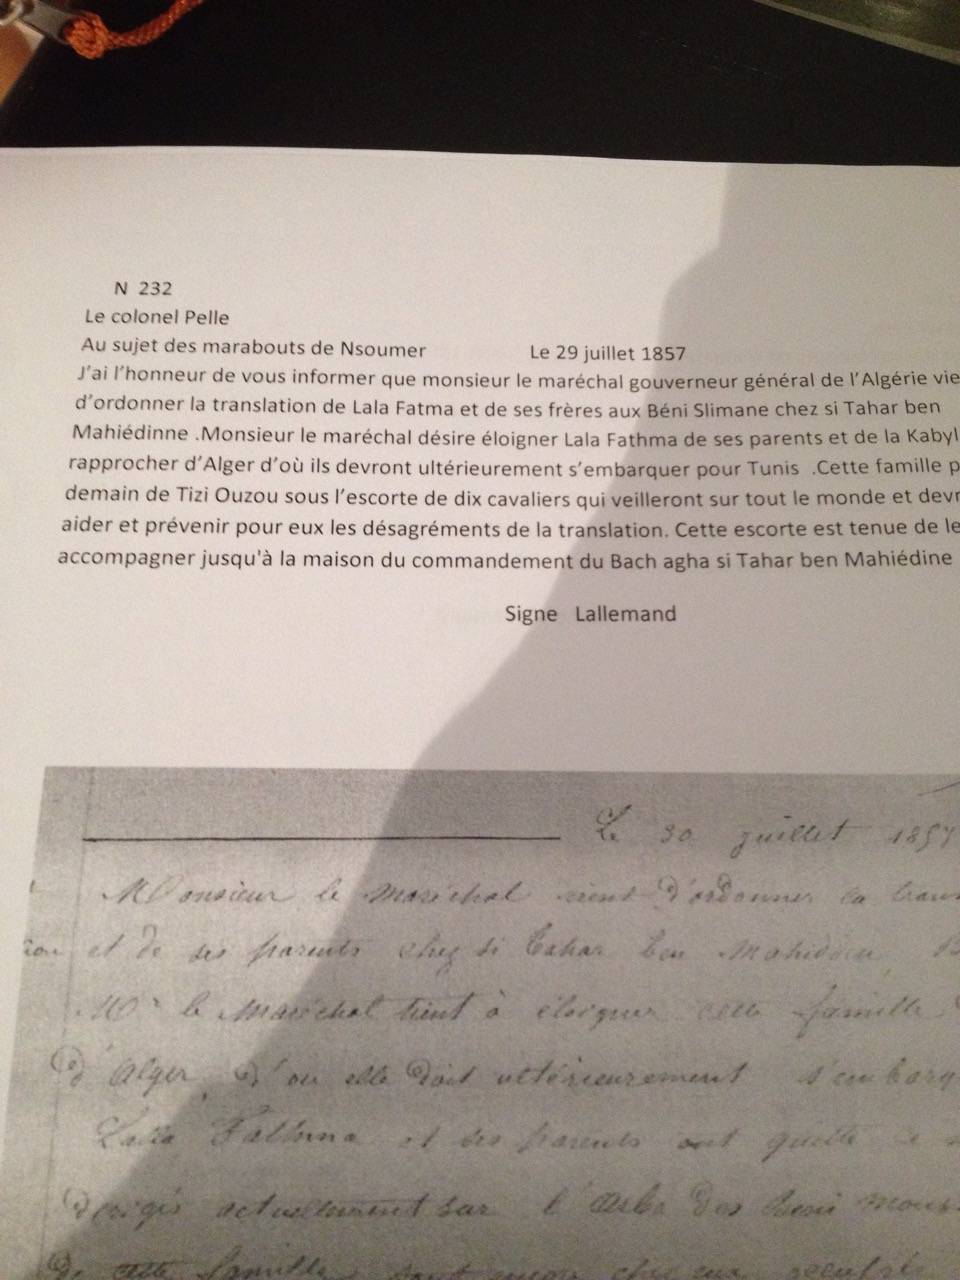 N 232
Le colonel Pelle
Au sujet des marabouts de Nsoumer Le 29 juillet 1857
J'ai l'honneur de vous informer que monsieur le maréchal gouverneur général de l'Algérie vie
d'ordonner la translation de Lala Fatma et de ses frères aux Béni Slimane chez si Tahar ben
Mahiédinne .Monsieur le maréchal désire éloigner Lala Fathma de ses parents et de la Kabyl
rapprocher d'Alger d'où ils devront ultérieurement s'embarquer pour Tunis .Cette famille p
demain de Tizi Ouzou sous l'escorte de dix cavaliers qui veilleront sur tout le monde et devr
aider et prévenir pour eux les désagréments de la translation. Cette escorte est tenue de le
accompagner jusqu'à la maison du commandement du Bach agha si Tahar ben Mahiédine
Signe Lallemand
Le 30 juillet 1857
Monsieur le Maréchal vient d'ordonner la
et de ses parents chez si Tahar ben
Mr le Maréchal tient à éloigner cette famille
d'Alger, d'ou elle doit ultérieurement s'embarq
Lalla Fathma et ses parents ont quitté
dirigés actuellement sur l' des Beni
De cette famille chez